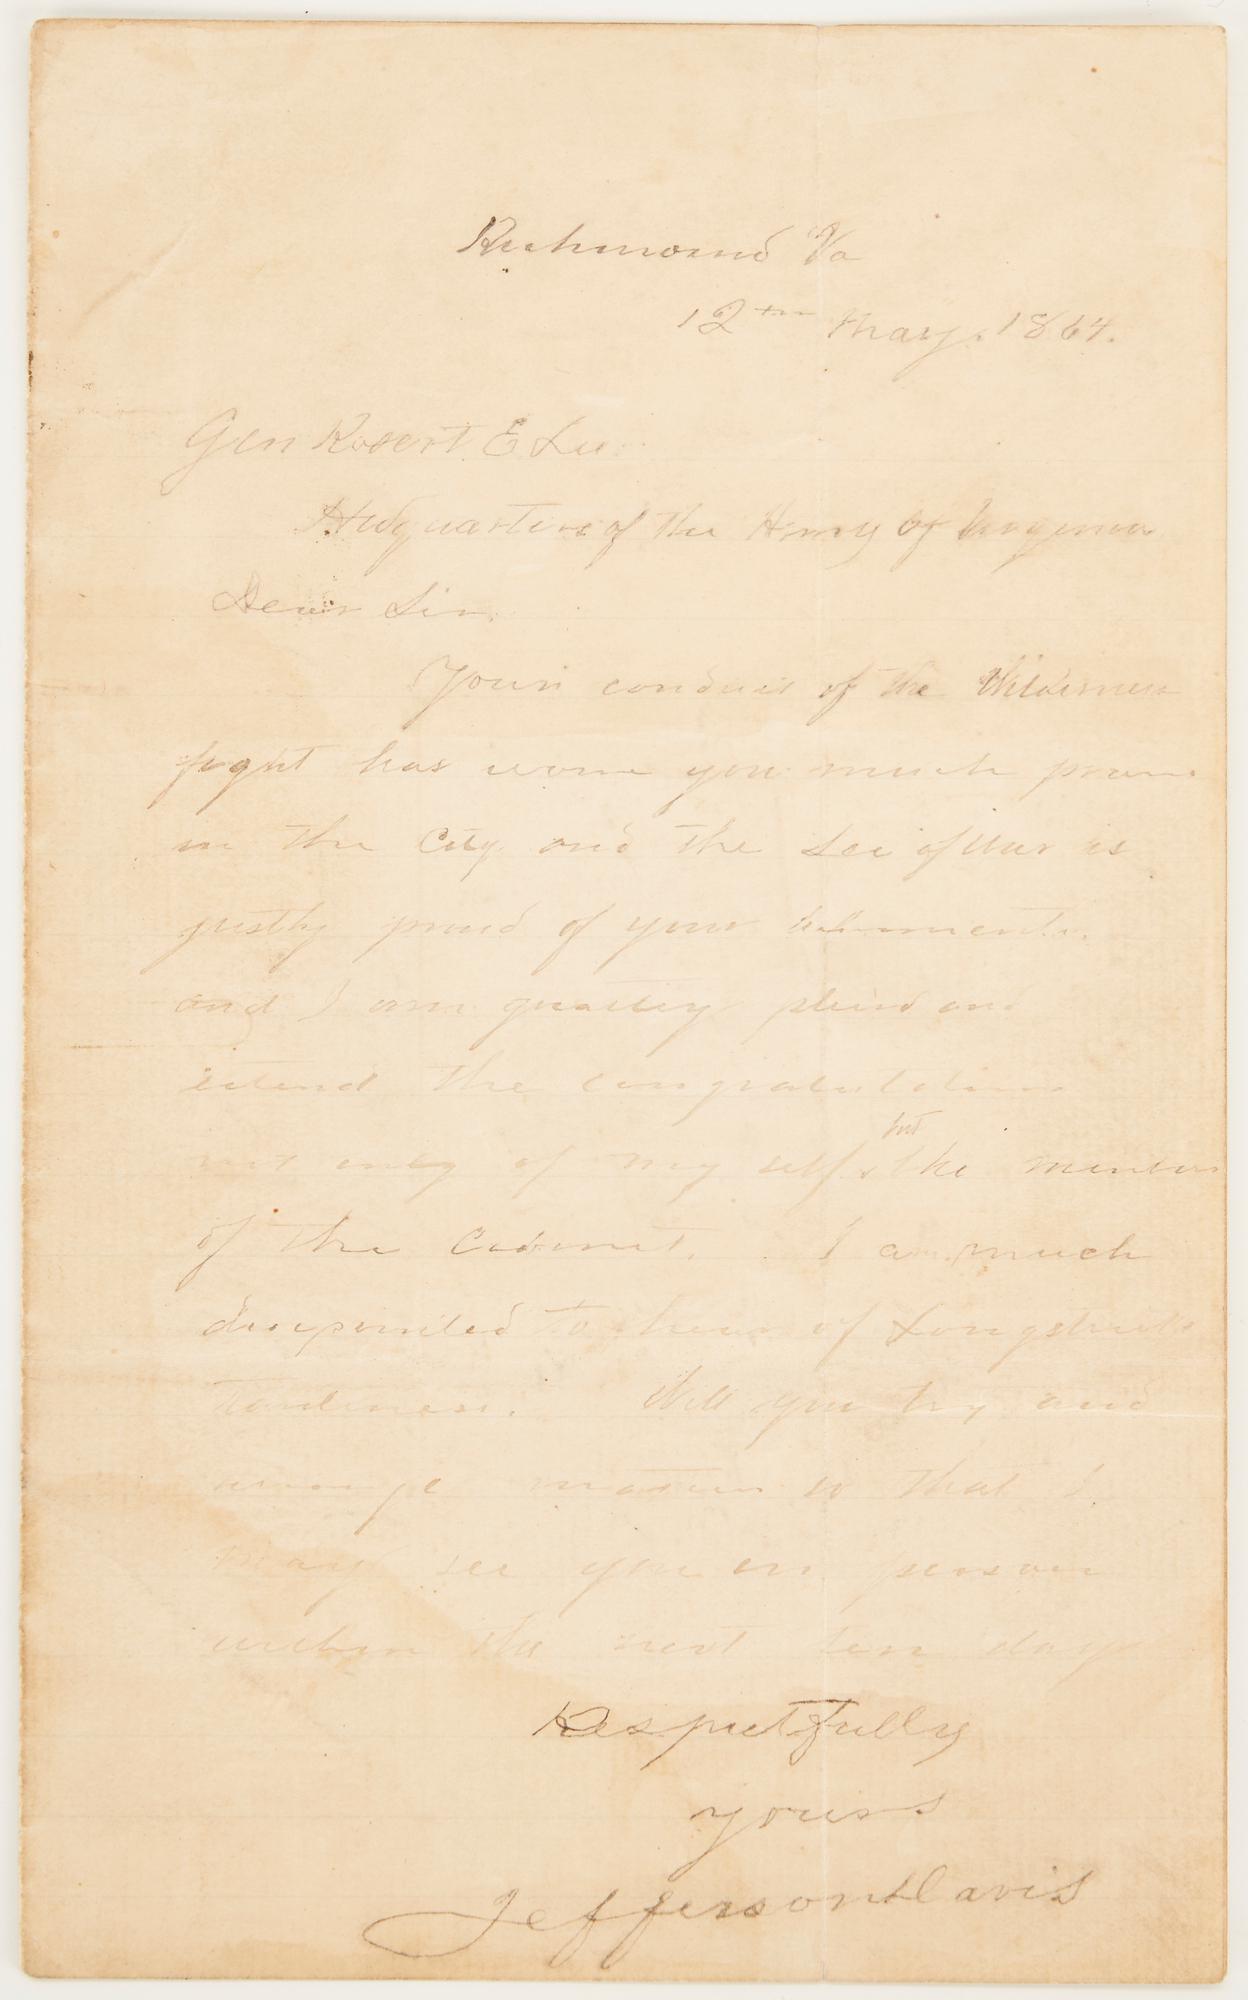 Richmond Va
12th May. 1864.
Gen Robert E Lee
Hedquarters of the Army of Virginia
Dear Sir.
Your conduct of the Wilderness
fight has wone you much praise
in the City and the Sec of War is
justly proud of your
and I am greatly and
extend the congratulations
not only of my self, but the members
of the Cabinet. I am much
to hear of Longstreets
tardiness. Will you try and
arrange matters so that I
may see you in person
within the next ten days
Respectfully
yours
Jefferson Davis